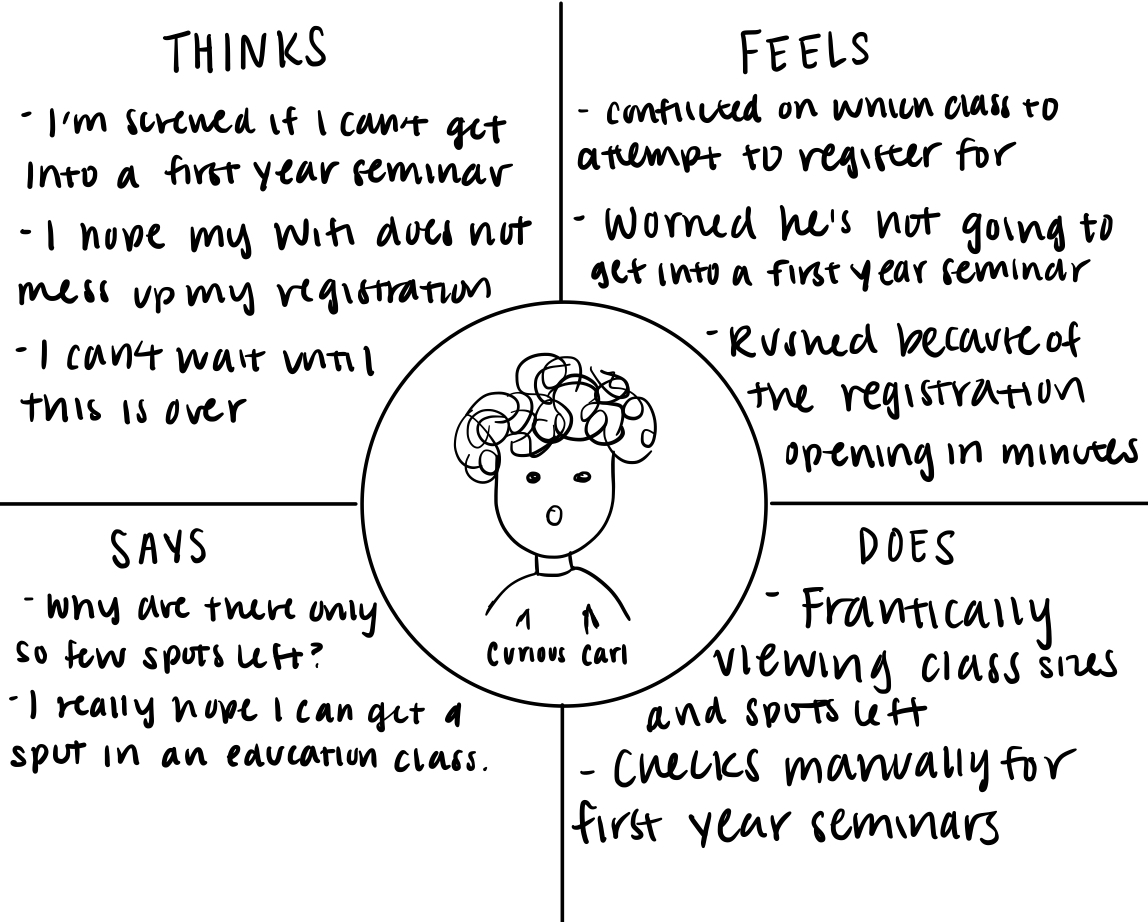 THINKS
- I'm screwed if I can't get
into a first year seminar
- I hope my wifi does not
mess up my registration
- I can't wait until
this is over
FEELS
- conflicted on which class to
attempt to register for
- Worried he's not going to
get into a first year seminar
- Rushed because of
the registration
opening in minutes
Curious Carl
SAYS
- Why are there only
so few spots left?
- I really hope I can get a
spot in an education class.
DOES
- Frantically
viewing class sizes
and spots left
- Checks manually for
first year seminars